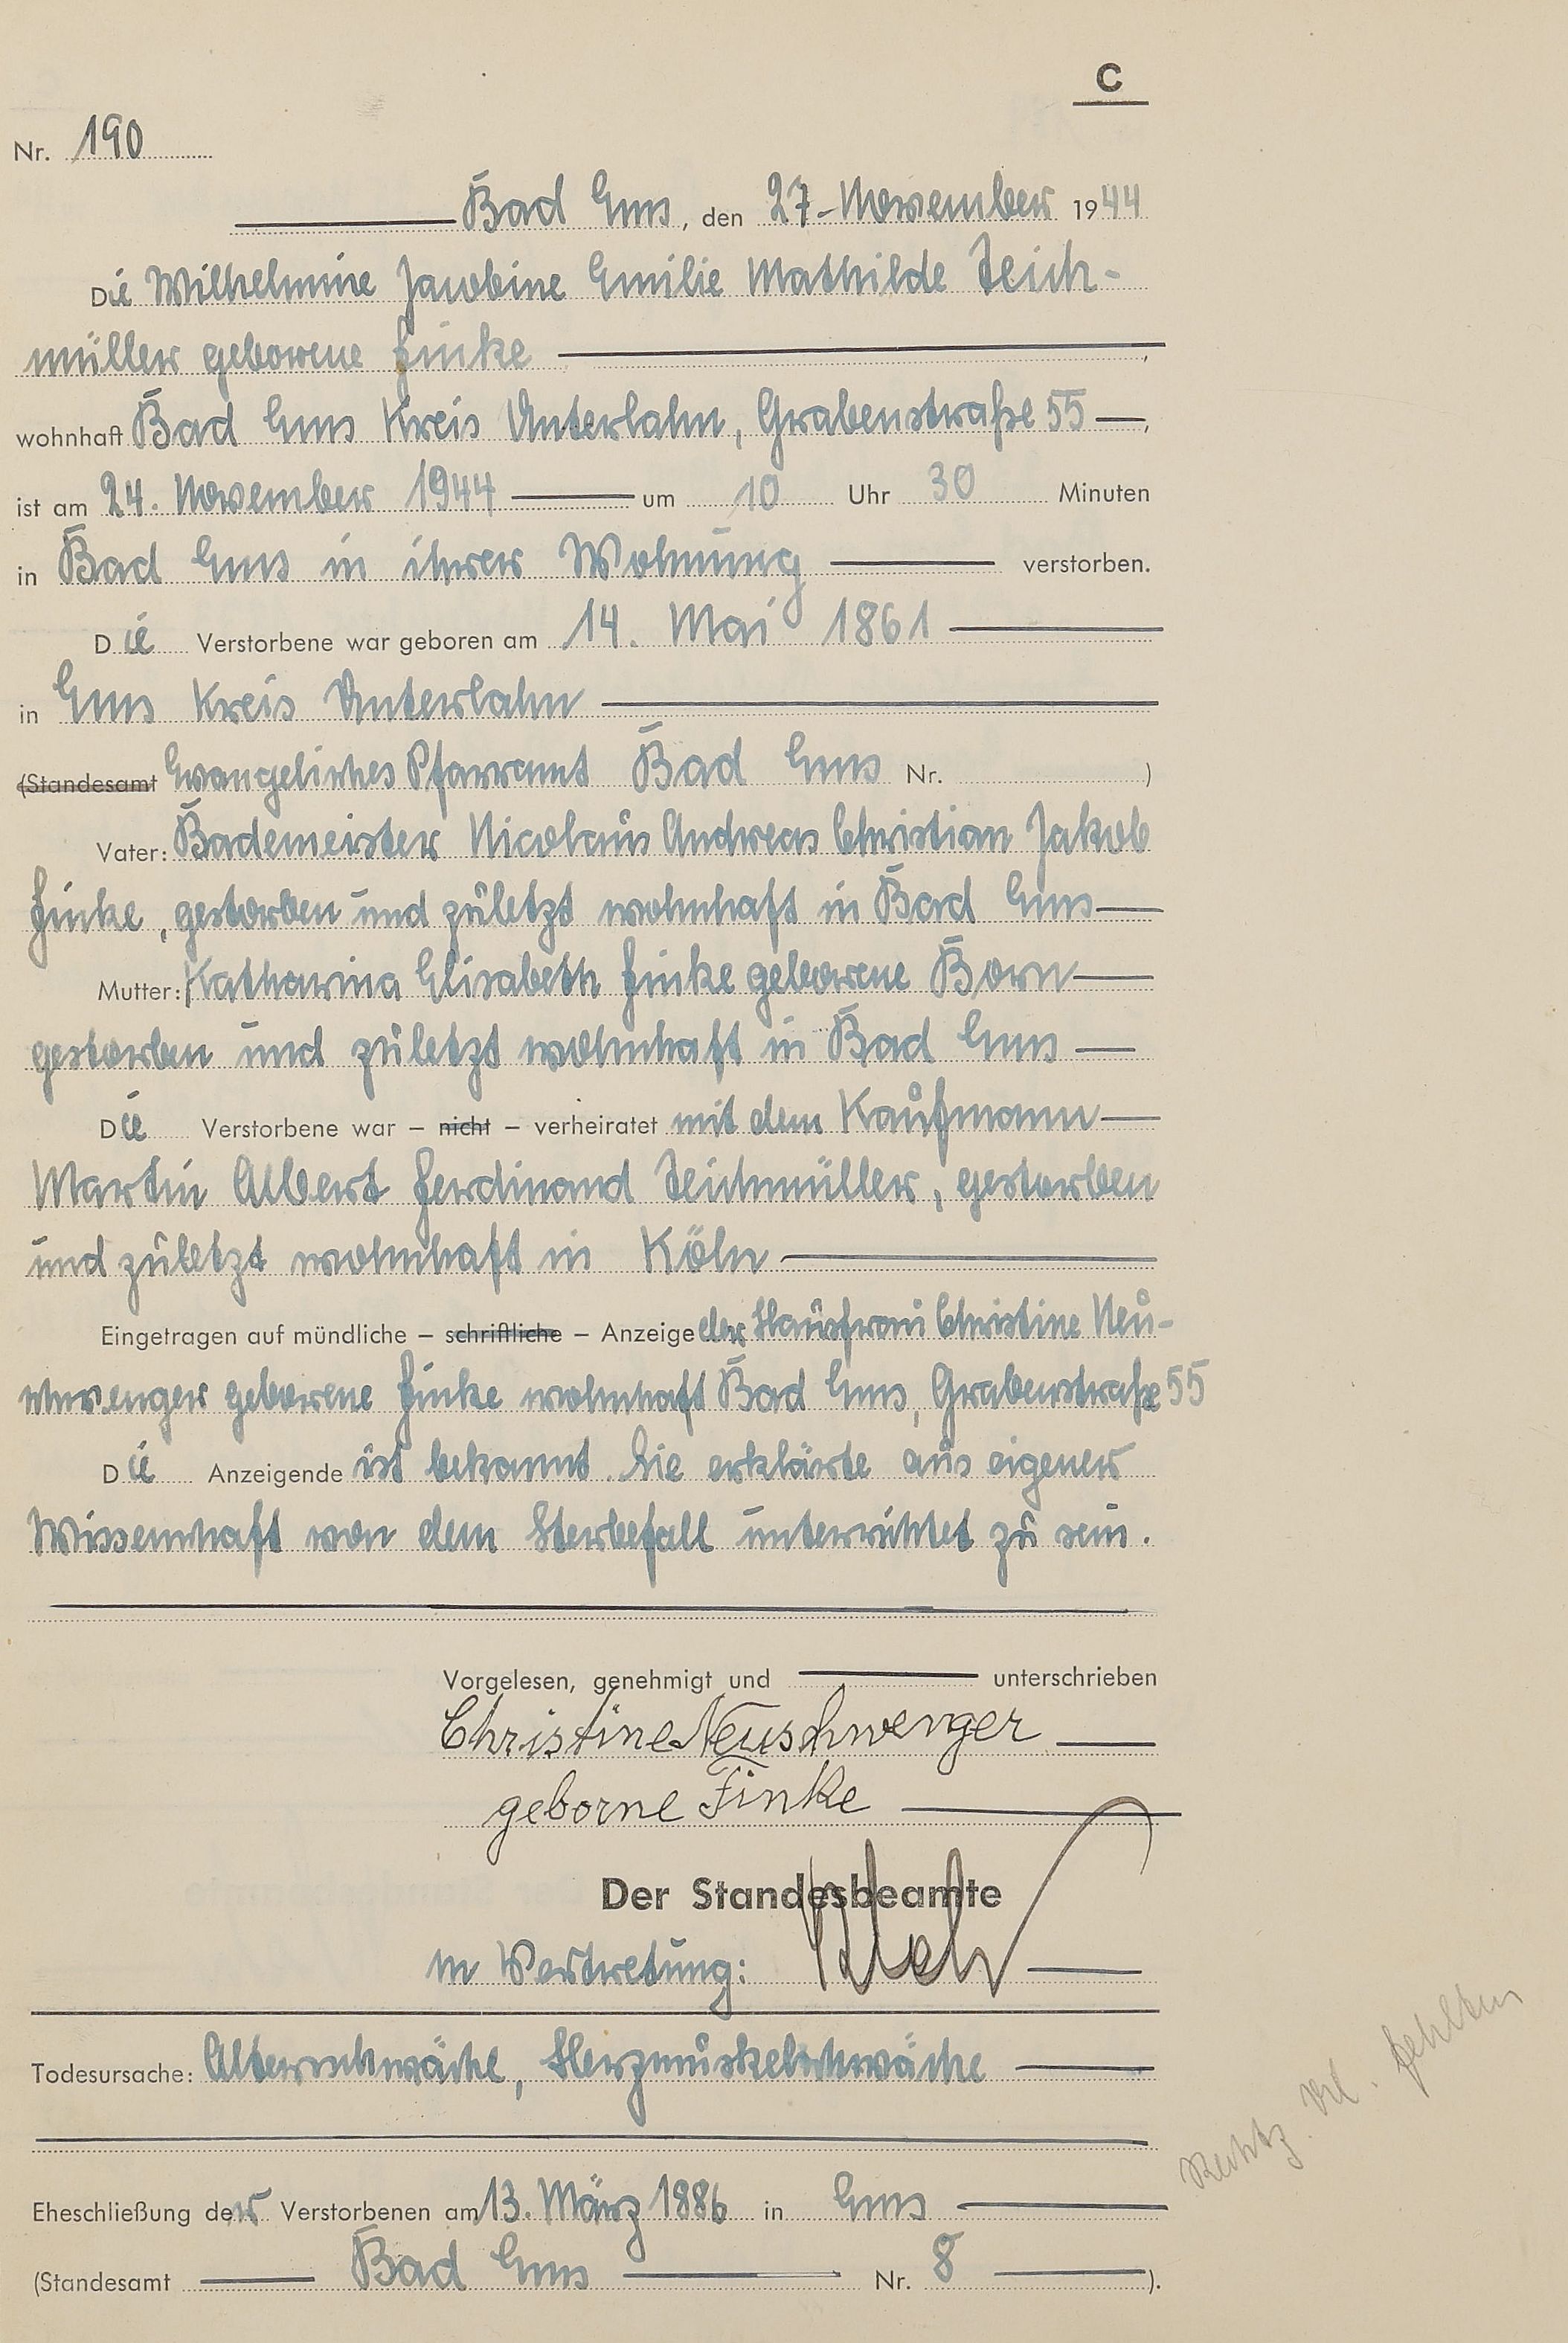 C
Nr. 190
Bad Ems, den 27. November 1944
Die Wilhelmine Jacobine Emilie Mathilde Teich-
müller geborene Finke
wohnhaft Bad Ems Kreis Unterlahn, Grabenstraße 55
ist am 24. November 1944 um 10 Uhr 30 Minuten
in Bad Ems in ihrer Wohnung verstorben.
Die Verstorbene war geboren am 14. Mai 1861
in Ems Kreis Unterlahn
(Standesamt Evangelisches Pfarramt Bad Ems Nr. )
Vater: Bademeister Nicolaus Andreas Christian Jakob
Finke, gestorben und zuletzt wohnhaft in Bad Ems
Mutter: Katharina Elisabeth Finke geborene Born
gestorben und zuletzt wohnhaft in Bad Ems
Die Verstorbene war – nicht – verheiratet mit dem Kaufmann
Martin Albert Ferdinand Teichmüller, gestorben
und zuletzt wohnhaft in Köln
Eingetragen auf mündliche – schriftliche – Anzeige der Hausfrau Christine Neu-
schwenger geborene Finke wohnhaft Bad Ems, Grabenstraße 55
Die Anzeigende ist bekannt. Sie erklärte aus eigener
Wissenschaft von dem Sterbefall unterrichtet zu sein.
Vorgelesen, genehmigt und unterschrieben
Christine Neuschwenger
geborne Finke
Der Standesbeamte
In Vertretung:
Todesursache: Altersschwäche, Herzmuskelschwäche
Eheschließung der Verstorbenen am 13. März 1886 in Ems
(Standesamt Bad Ems Nr. 8 ).
fehlten